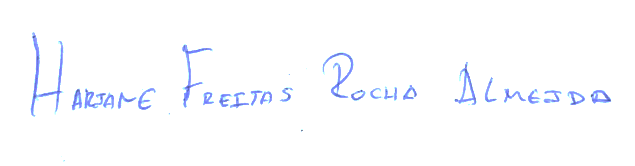 HARIANE FREITAS ROCHA ALMEIDA